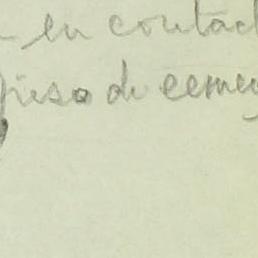 en contac
piso de cemen